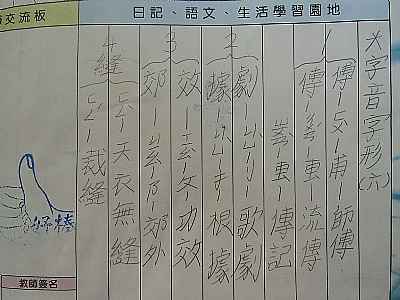 交流板
日記、語文、生活學習園地
字音字形(六)
1 傅-ㄈㄨˋ-甫-師傅
傳-ㄔㄨㄢˊ-專-流傳
ㄓㄨㄢˋ-專-傳記
2 劇-ㄐㄩˋ-刂-歌劇
據-ㄐㄩˋ-扌-根據
3 效-ㄒㄧㄠˋ-攵-功效
郊-ㄐㄧㄠ-阝-郊外
4 縫
ㄈㄥˋ-天衣無縫
ㄈㄥˊ-裁縫
好棒
教師簽名